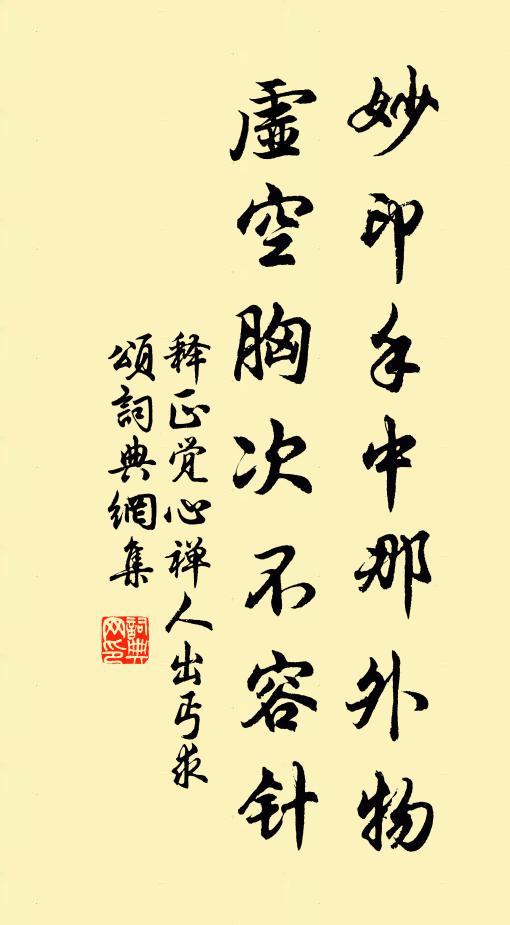 妙印手中那外物
虛空胸次不容针
释正觉心禅人出丐求
頌詞典網集
詞典网印